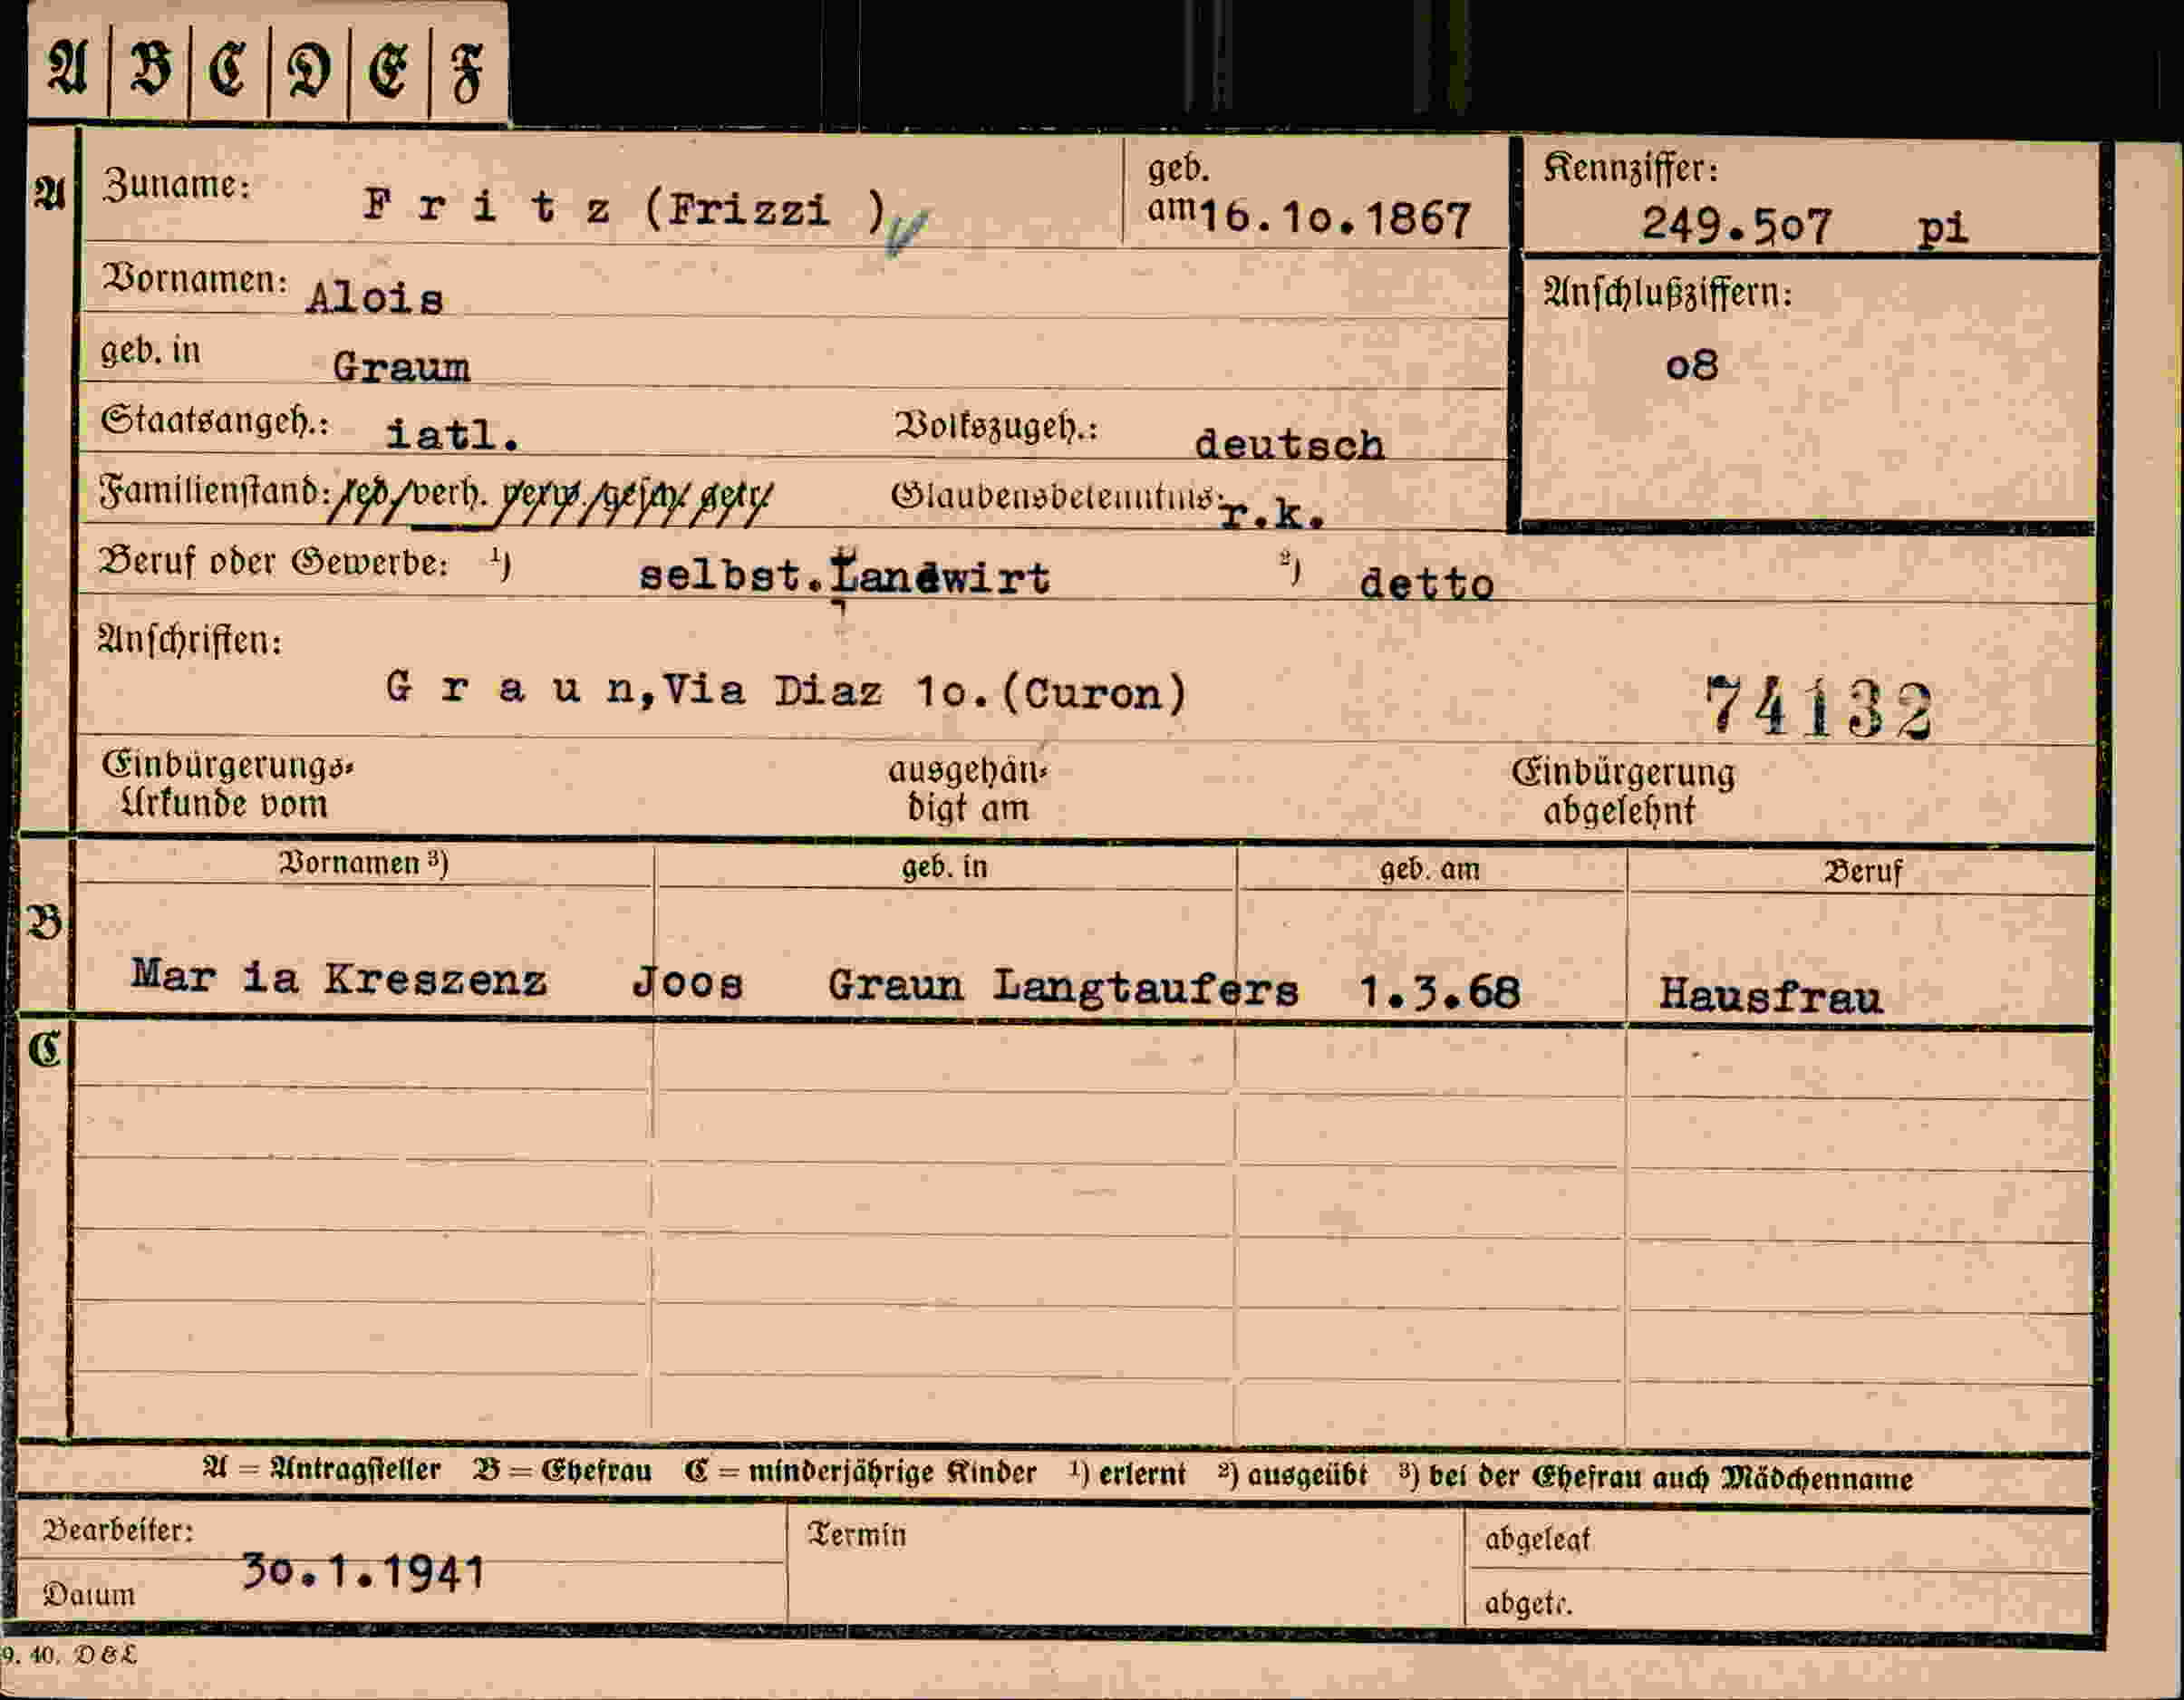 A B C D E F
A Zuname: F r i t z (Frizzi ) geb. am 16.10.1867 Kennziffer: 249.507 pi
Vornamen: Alois Anschlußziffern:
geb. in Graum o8
Staatsangeh.: iatl. Volkszugeh.: deutsch
Familienstand: led/verh. verw./gesch/ getr/ Glaubensbekenntnis: r.k.
Beruf oder Gewerbe: ¹) selbst.Landwirt ²) detto
Anschriften:
G r a u n,Via Diaz 1o.(Curon) 74132
Einbürgerungs- ausgehän- Einbürgerung
Urkunde vom digt am abgelehnt
Vornamen ³) geb. in geb. am Beruf
B
Mar ia Kreszenz Joos Graun Langtaufers 1.3.68 Hausfrau
C
A = Antragsteller B = Ehefrau C = minderjährige Kinder ¹) erlernt ²) ausgeübt ³) bei der Ehefrau auch Mädchenname
Bearbeiter: Termin abgelegt
3o.1.1941
Datum abgetr.
9. 40. D & L